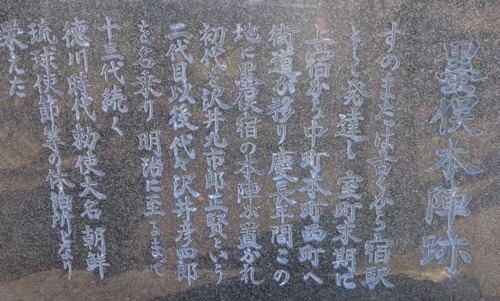 墨俣本陣跡
すのまたは古くから宿駅
として発達し 室町末期に
上宿から中町本町西町へ
街道が移り慶長年間この
地に墨俣宿の本陣が置かれ
初代を沢井九市郎正賢という
二代目以後代々沢井彦四郎
を名乗り 明治に至るまで
十三代続く
徳川時代勅使大名 朝鮮
琉球使節等の休泊所となり
栄えた